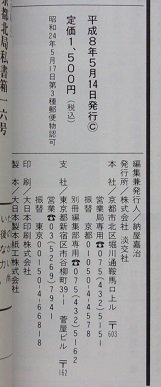 平成8年5月14日発行©
定価1,500円(税込)
昭和24年5月17日第3種郵便物認可
京都北局私書箱一六号
編集兼発行人/納屋嘉治
発行所/株式会社 淡交社
本社/京都市北区堀川通鞍馬口上ル 〒603
営業☎075(432)5151
振替 京都01050-1-4578
別冊編集部専用☎075(432)5162
支社/東京都新宿区市谷柳町39-1 菅屋ビル 〒162
営業☎03(5269)7941
振替 東京00150-4-66818
印刷/大日本印刷株式会社
本文/大日本製本紙工株式会社